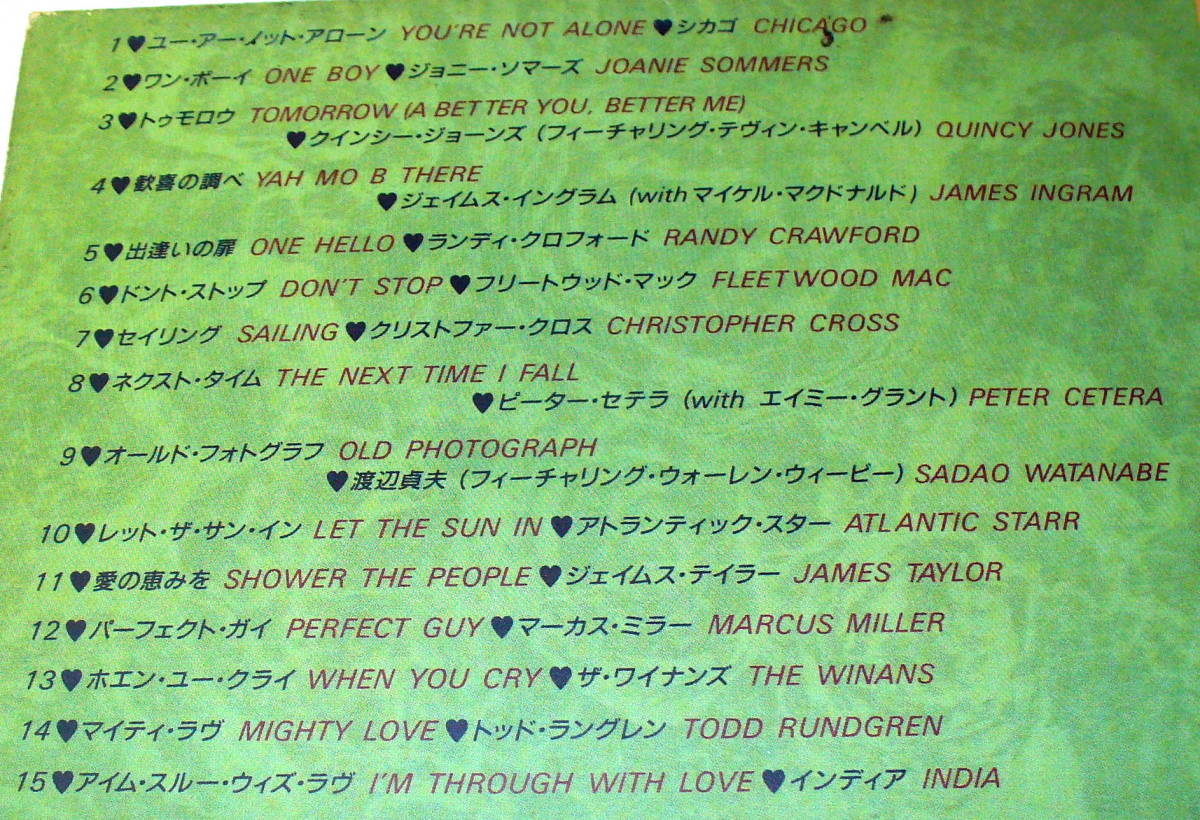 1♥ユー・アー・ノット・アローン YOU'RE NOT ALONE♥シカゴ CHICAGO
2♥ワン・ボーイ ONE BOY♥ジョニー・ソマーズ JOANIE SOMMERS
3♥トゥモロウ TOMORROW (A BETTER YOU, BETTER ME)
♥クインシー・ジョーンズ (フィーチャリング・テヴィン・キャンベル) QUINCY JONES
4♥歓喜の調べ YAH MO B THERE
♥ジェイムス・イングラム (with マイケル・マクドナルド) JAMES INGRAM
5♥出逢いの扉 ONE HELLO♥ランディ・クロフォード RANDY CRAWFORD
6♥ドント・ストップ DON'T STOP♥フリートウッド・マック FLEETWOOD MAC
7♥セイリング SAILING♥クリストファー・クロス CHRISTOPHER CROSS
8♥ネクスト・タイム THE NEXT TIME I FALL
♥ピーター・セテラ (with エイミー・グラント) PETER CETERA
9♥オールド・フォトグラフ OLD PHOTOGRAPH
♥渡辺貞夫 (フィーチャリング・ウォーレン・ウィービー) SADAO WATANABE
10♥レット・ザ・サン・イン LET THE SUN IN♥アトランティック・スター ATLANTIC STARR
11♥愛の恵みを SHOWER THE PEOPLE♥ジェイムス・テイラー JAMES TAYLOR
12♥パーフェクト・ガイ PERFECT GUY♥マーカス・ミラー MARCUS MILLER
13♥ホエン・ユー・クライ WHEN YOU CRY♥ザ・ワイナンズ THE WINANS
14♥マイティ・ラヴ MIGHTY LOVE♥トッド・ラングレン TODD RUNDGREN
15♥アイム・スルー・ウィズ・ラヴ I'M THROUGH WITH LOVE♥インディア INDIA